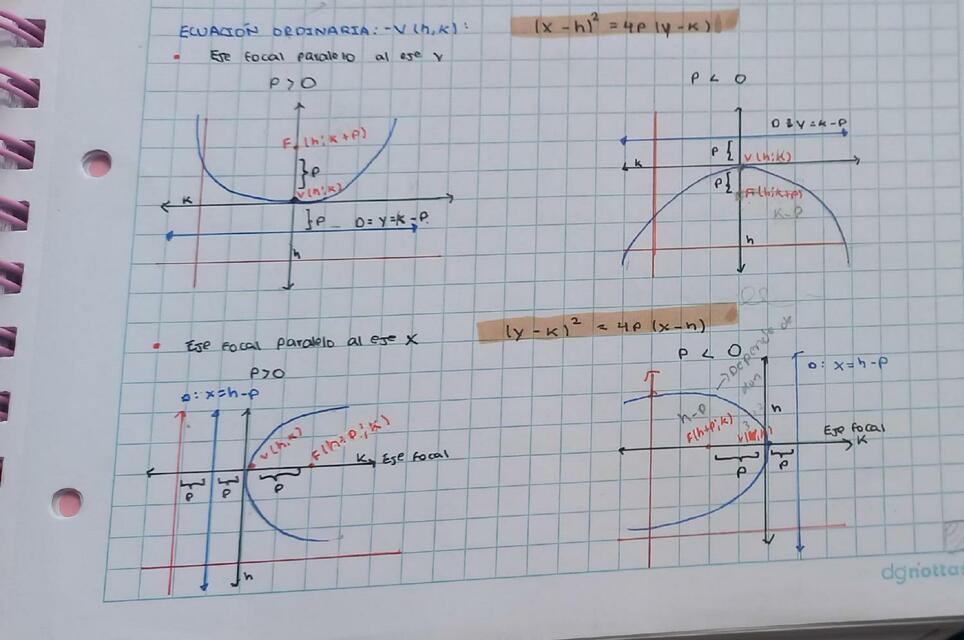 ECUACIÓN ORDINARIA: - V (h, k) :
(x - h)² = 4P (y - k)
• Eje focal paralelo al eje Y
P > 0
P < 0
F (h; k+P)
} P
V (h; k)
k
} P
D = Y = k - P
h
D : Y = k - P
P {
V (h; k)
k
P {
F (h; k+P)
k - P
h
(y - k)² = 4P (x - h)
• Eje focal paralelo al eje X
P > 0
D: x = h - P
V (h; k)
k
Eje focal
P
P
P
h
P < 0
→ Depende de
D: x = h - P
h
h - P
F (h+P; k)
Eje focal
k
P
P
dgnottas